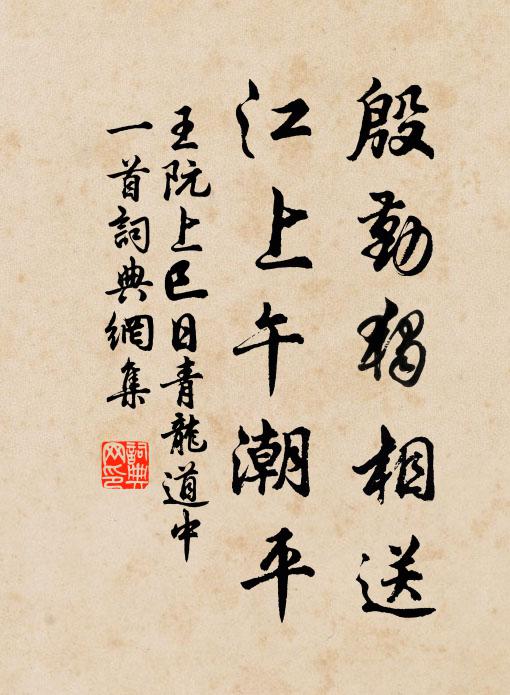 殷勤獨相送
江上午潮平
王阮上巳日青龍道中
一首詞典網集
詞典
网印